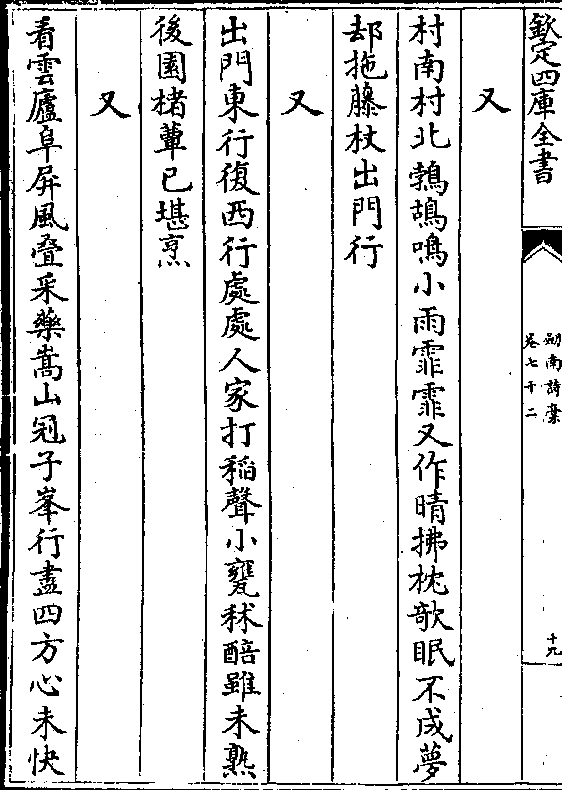 欽定四庫全書
劒南詩稾
卷七十二
十九
又
村南村北鵓鴣鳴小雨霏霏又作晴拂枕欹眠不成夢
却拖藤杖出門行
又
出門東行復西行處處人家打稻聲小甕秫醅雖未熟
後園楮蕈已堪烹
又
看雲廬阜屏風疊采藥嵩山冠子峯行盡四方心未快